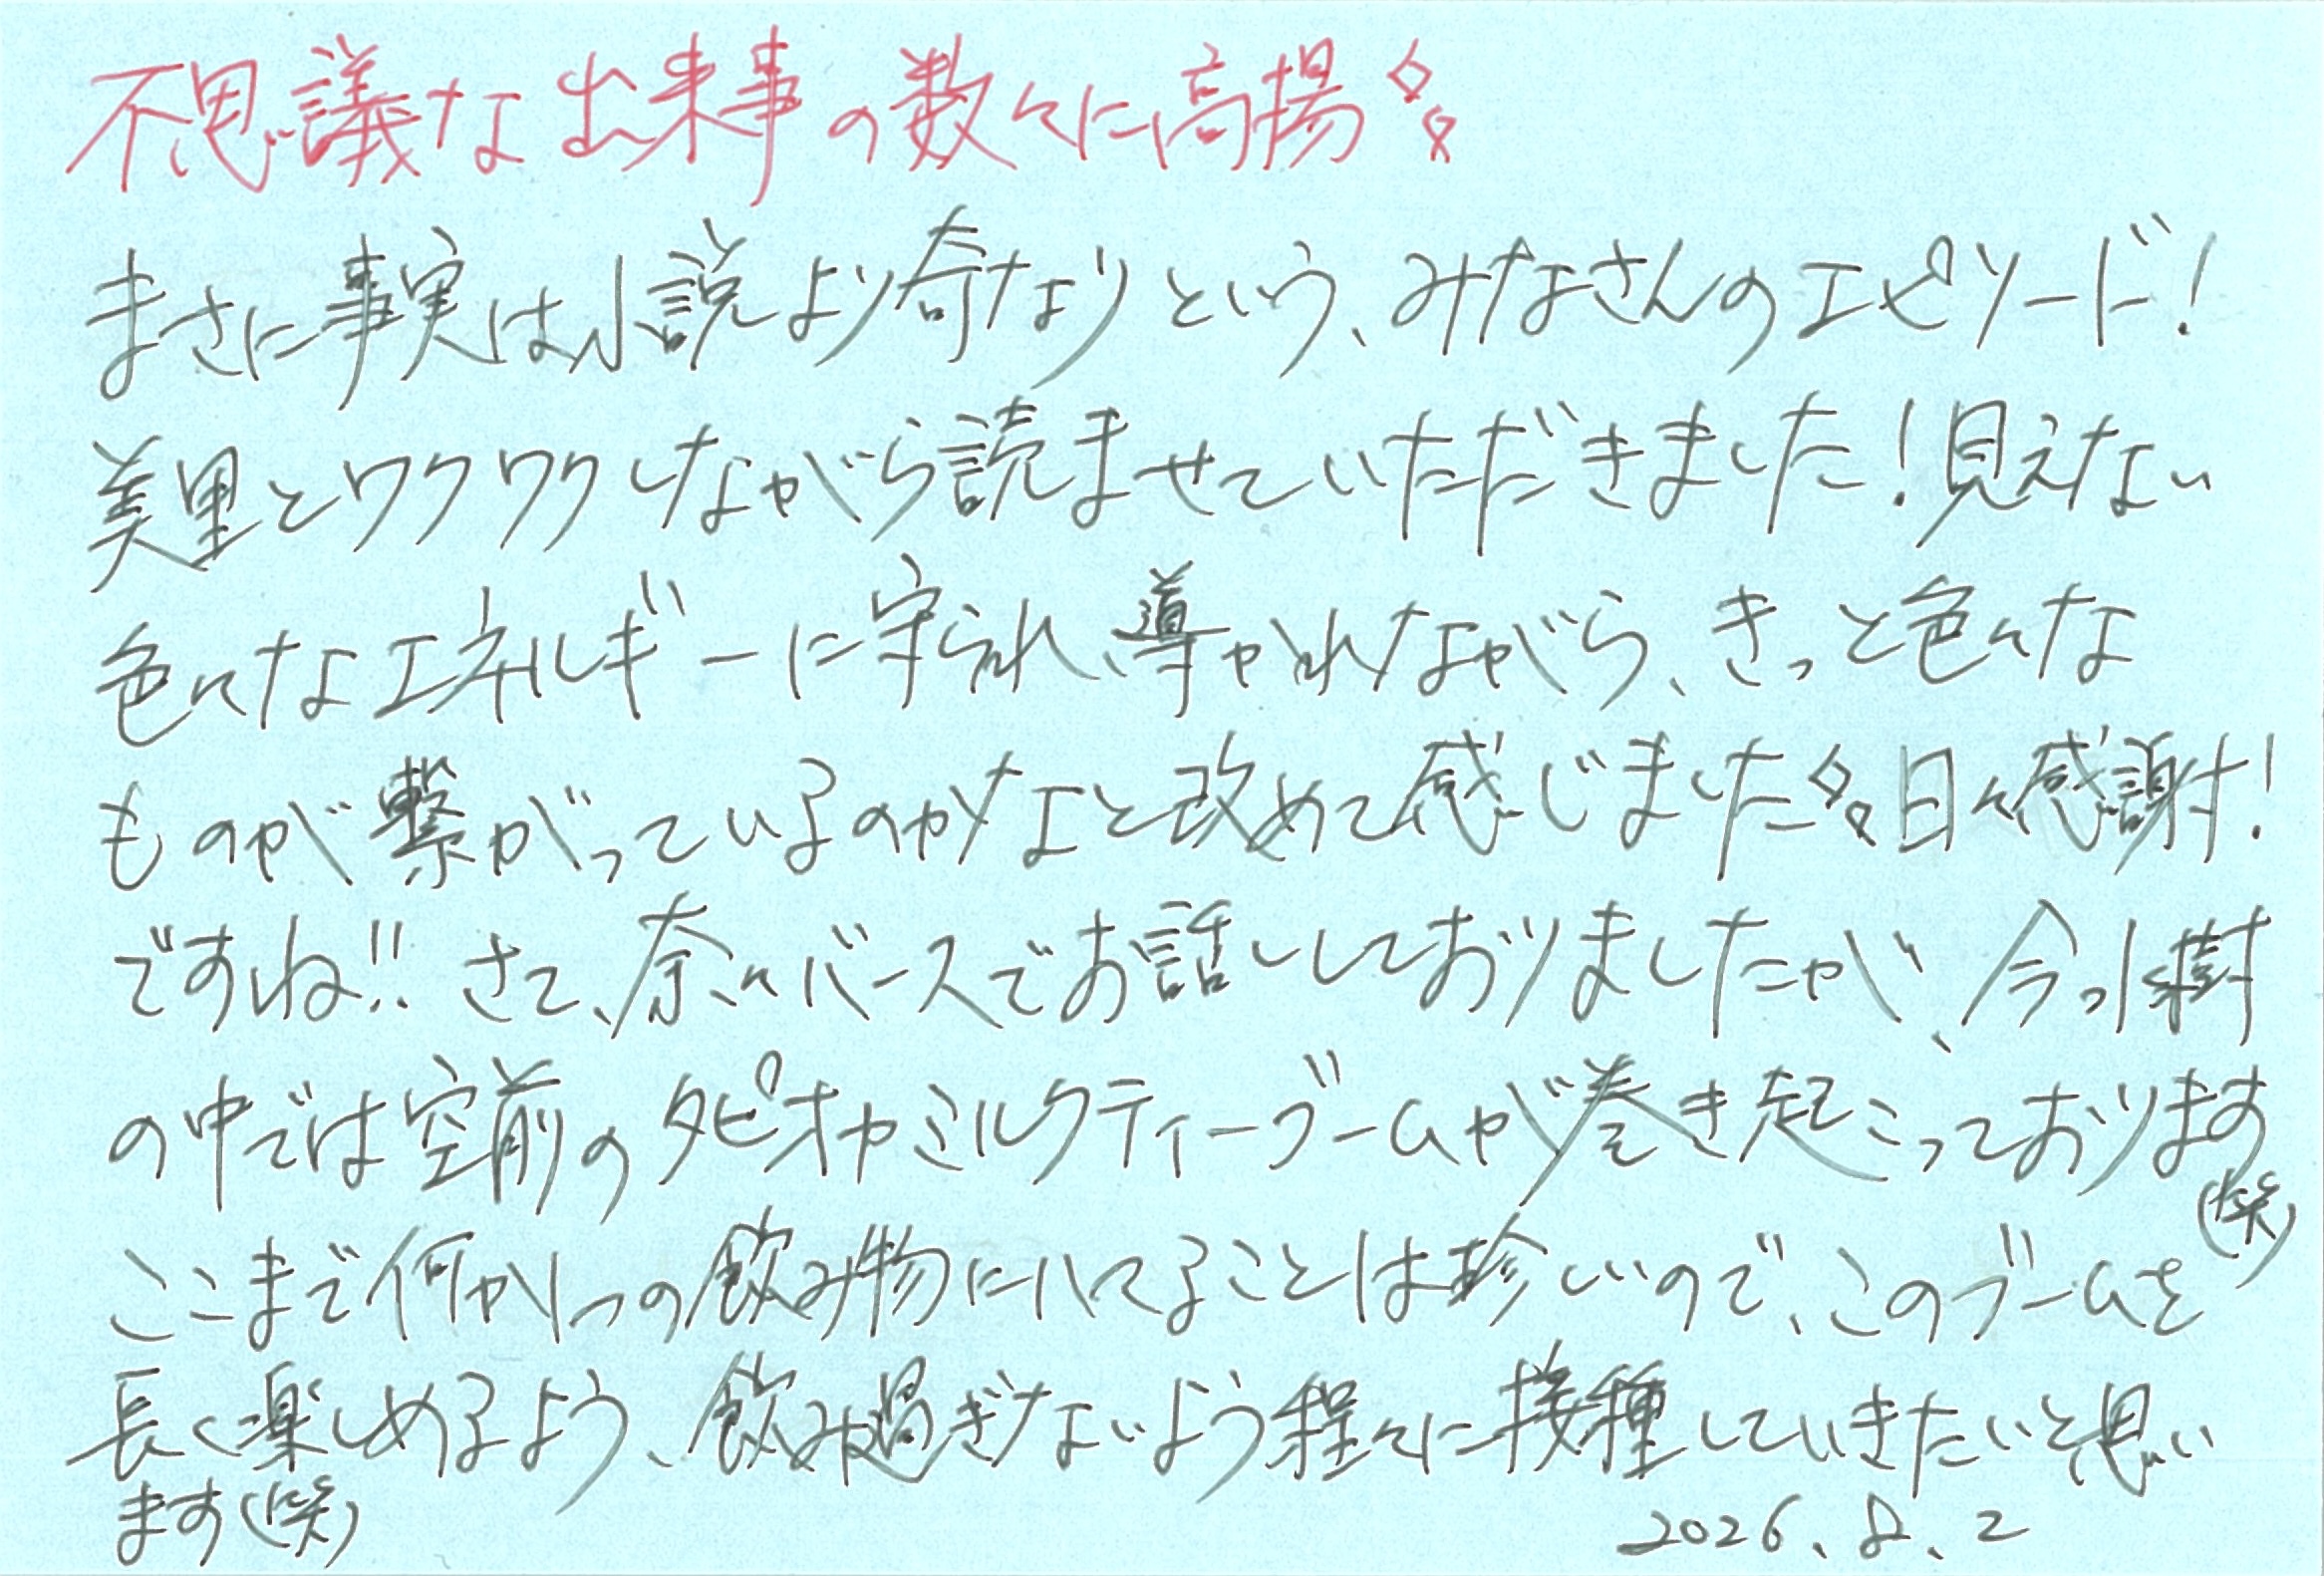 不思議な出来事の数々に高揚
まさに事実は小説より奇なりという、みなさんのエピソード！
美里とワクワクしながら読ませていただきました！見えない
色々なエネルギーに守られ、導かれながら、きっと色々な
ものが繋がっているのかなと改めて感じました 日々感謝！
ですね!! さて、奈々バースでお話ししておりましたが、今小樹
の中では空前のタピオカミルクティーブームが巻き起こっております(笑)
ここまで何か1つの飲み物にハマることは珍しいので、このブームを
長く楽しめるよう、飲み過ぎないよう程々に接種していきたいと思い
ます(笑)
2026.8.2